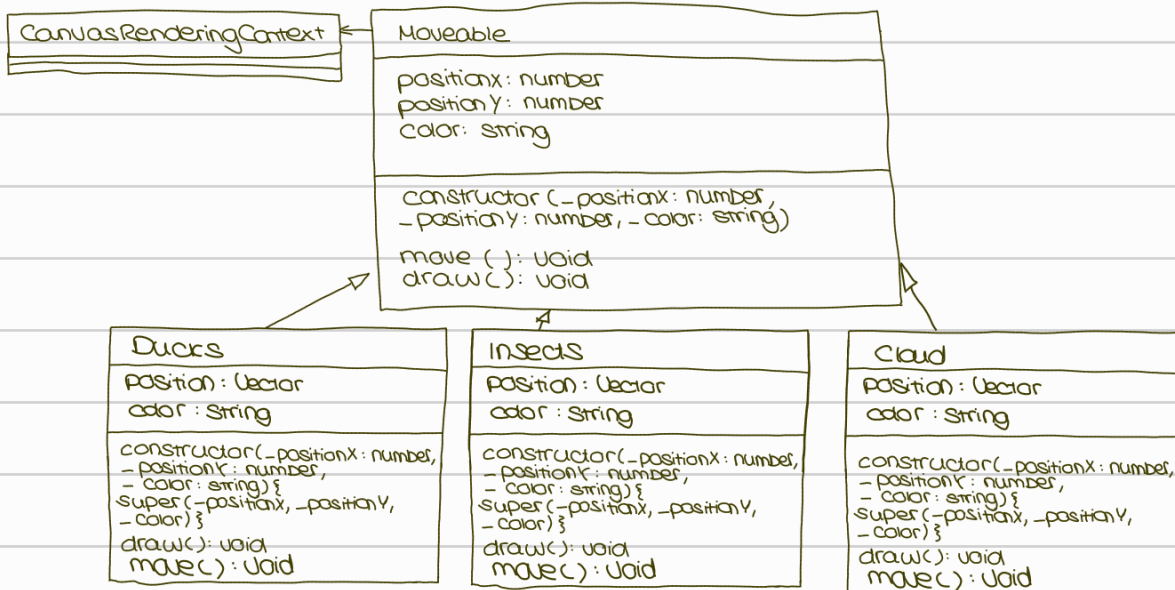 CanvasRenderingContext
Moveable
positionX: number
positionY: number
color: string
constructor (_positionX: number,
_positionY: number, _color: string)
move (): void
draw(): void
Ducks
position: Vector
color: string
constructor(_positionX: number,
_positionY: number,
_color: string){
super(_positionX, _positionY,
_color)}
draw(): void
move(): void
Insects
position: Vector
color: string
constructor(_positionX: number,
_positionY: number,
_color: string){
super(_positionX, _positionY,
_color)}
draw(): void
move(): void
Cloud
position: Vector
color: string
constructor(_positionX: number,
_positionY: number,
_color: string){
super(_positionX, _positionY,
_color)}
draw(): void
move(): void